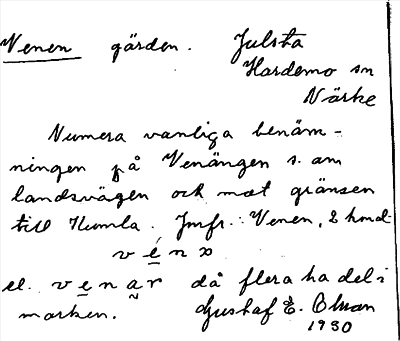 Venen gärden. Julsta
Hardemo sn
Närke
Numera vanliga benäm-
ningen på Venängen s. om
landsvägen och mot gränsen
till Kumla. Jmfr. Venen, 2 hmd.
v é n x
el. v e n a r då flera ha del i
marken. Gustaf E. Ohman
1930